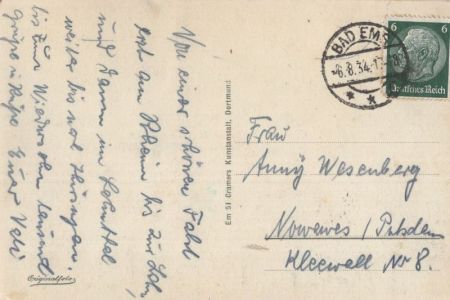 Von einer schönen Fahrt
erst am Rhein bis zur Lahn,
und dann im Lahntal
weiter bis nach Thüringen
bis zum Wiedersehn
Grüße u Küße Euer
Originalfoto
Em 51 Cramers Kunstanstalt, Dortmund
BAD EMS
-6.8.34.
6 6
Deutsches Reich
Frau
Anny Wesenberg
Nowawes / Potsdam
Kleewall Nr 8.